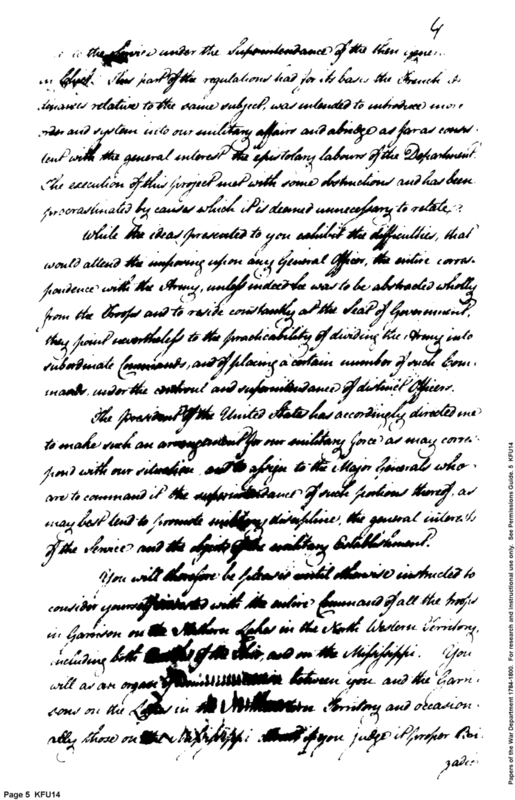 4
the Service under the Superintendance of the then
in Chief. This part of the regulations had for its basis the French
dinances relative to the same subject, was intended to introduce more
order and system into our military affairs and abridge as far as consis-
tent with the general interest the epistolary labours of the Department.
The execution of this project met with some obstructions and has been
procrastinated by causes which it is deemed unnecessary to relate.
While the ideas presented to you exhibit the difficulties, that
would attend the imposing upon any General Officer, the entire corres-
pondence with the Army, unless indeed he was to be abstracted wholly
from the Troops and to reside constantly at the Seat of Government,
they point nevertheless to the practicability of dividing the Army into
subordinate Commands, and of placing a certain number of such Com-
mands, under the controul and superintendance of distinct Officers.
The president of the United States has accordingly directed me
to make such an arrangement for our military force as may corres-
pond with our situation and to assign to the Major Generals who
are to command it the superintendance of such portions thereof, as
may best tend to promote military discipline, the general interests
of the Service and the objects of the military Establishment.
You will therefore be pleased until otherwise instructed to
consider yourself invested with the entire Command of all the troops
in Garrison on the Northern Lakes in the North Western Territory,
including both of the Ohio, and on the Mississippi. You
will as an organ between you and the Garri-
sons on the Lakes in the Territory and occasion-
ally those on the Mississippi you judge it proper Bri-
gadier
Page 5 KFU14
Papers of the War Department 1784-1800. For research and instructional use only. See Permissions Guide. 5 KFU14